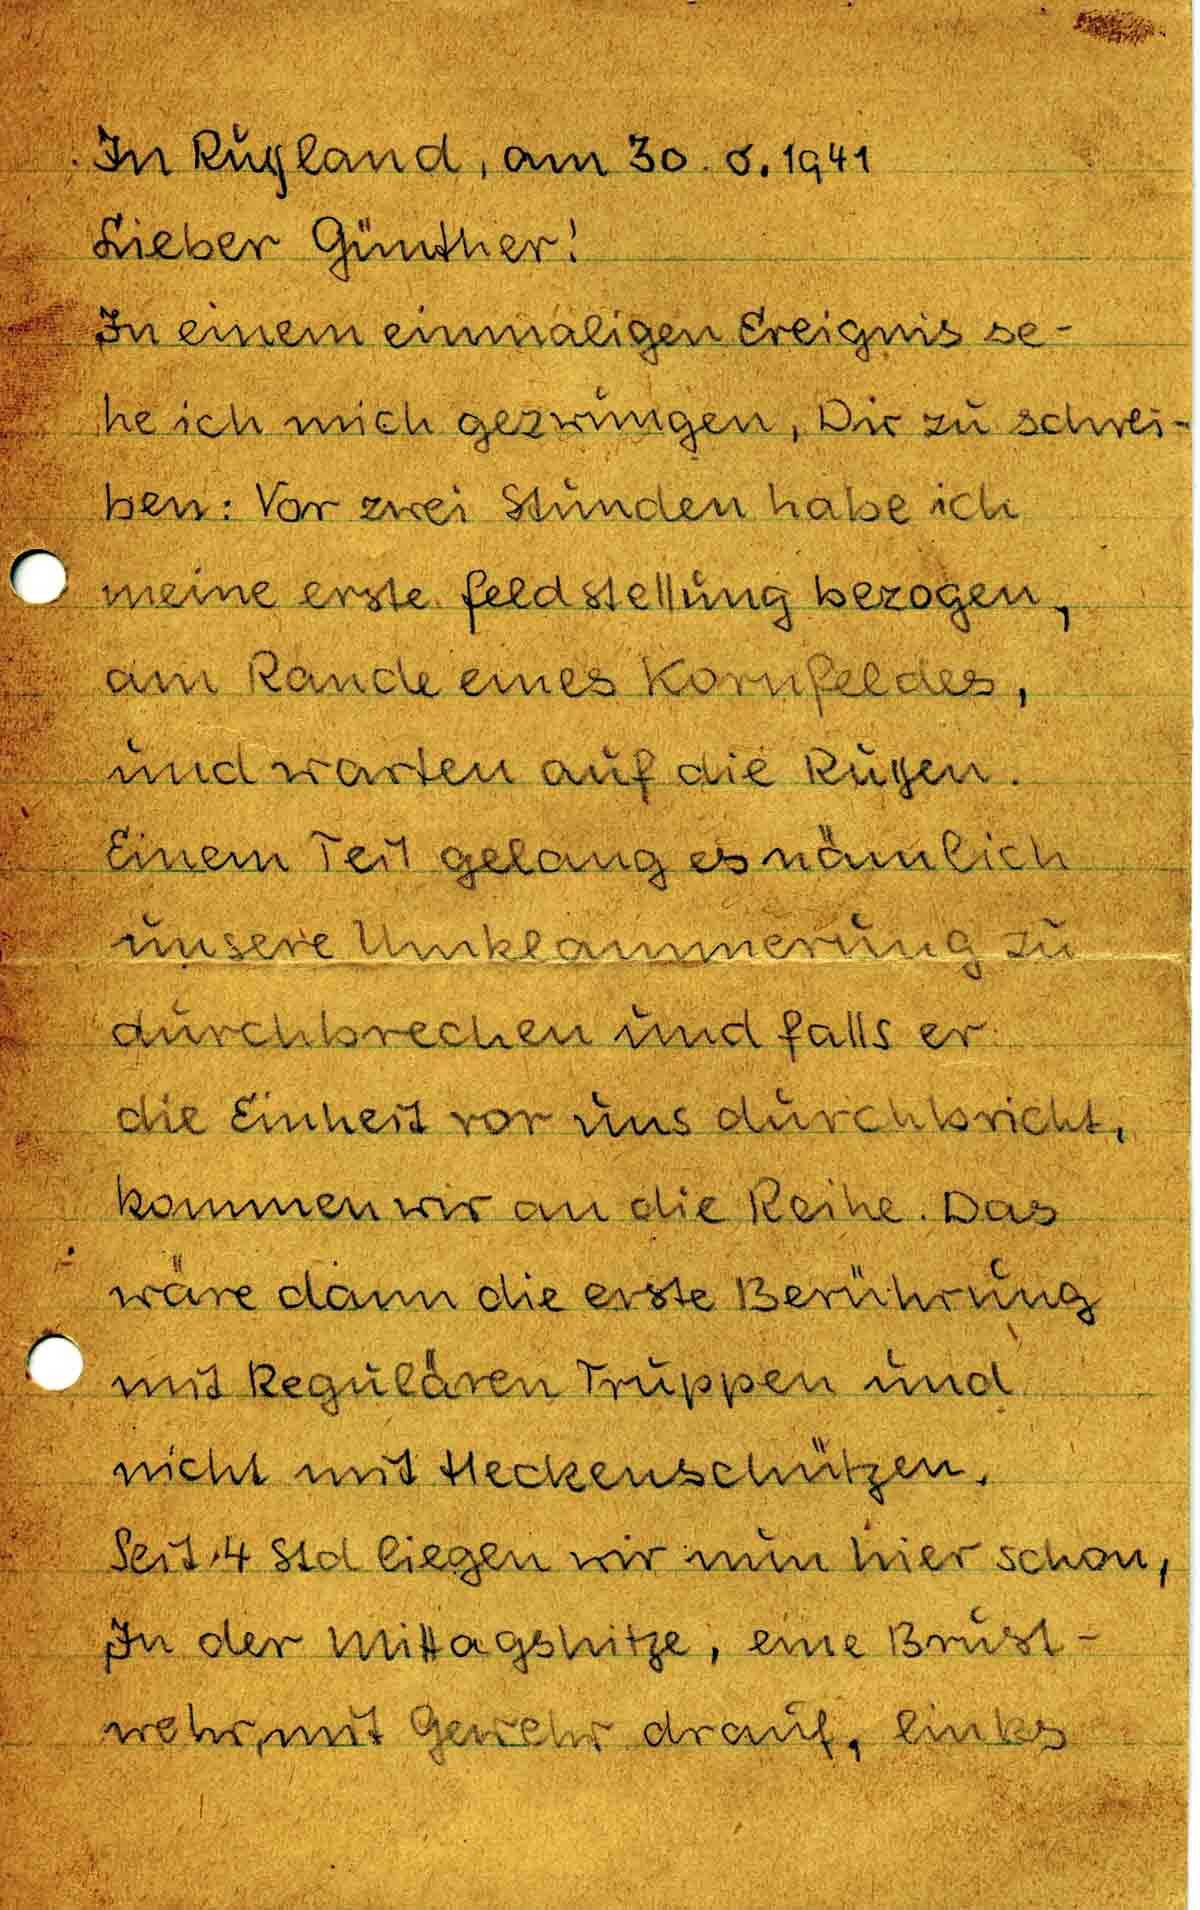 In Rußland, am 30. 6. 1941
Lieber Günther!
In einem einmaligen Ereignis se-
he ich mich gezwungen, Dir zu schrei-
ben: Vor zwei Stunden habe ich
meine erste Feldstellung bezogen,
am Rande eines Kornfeldes,
und warten auf die Rußen.
Einem Teil gelang es nämlich
unsere Umklammerung zu
durchbrechen und falls er
die Einheit vor uns durchbricht,
kommen wir an die Reihe. Das
wäre dann die erste Berührung
mit Regulären Truppen und
nicht mit Heckenschützen.
Seit 4 Std liegen wir nun hier schon,
In der Mittagshitze, eine Brust-
wehr, mit Gewehr drauf, links